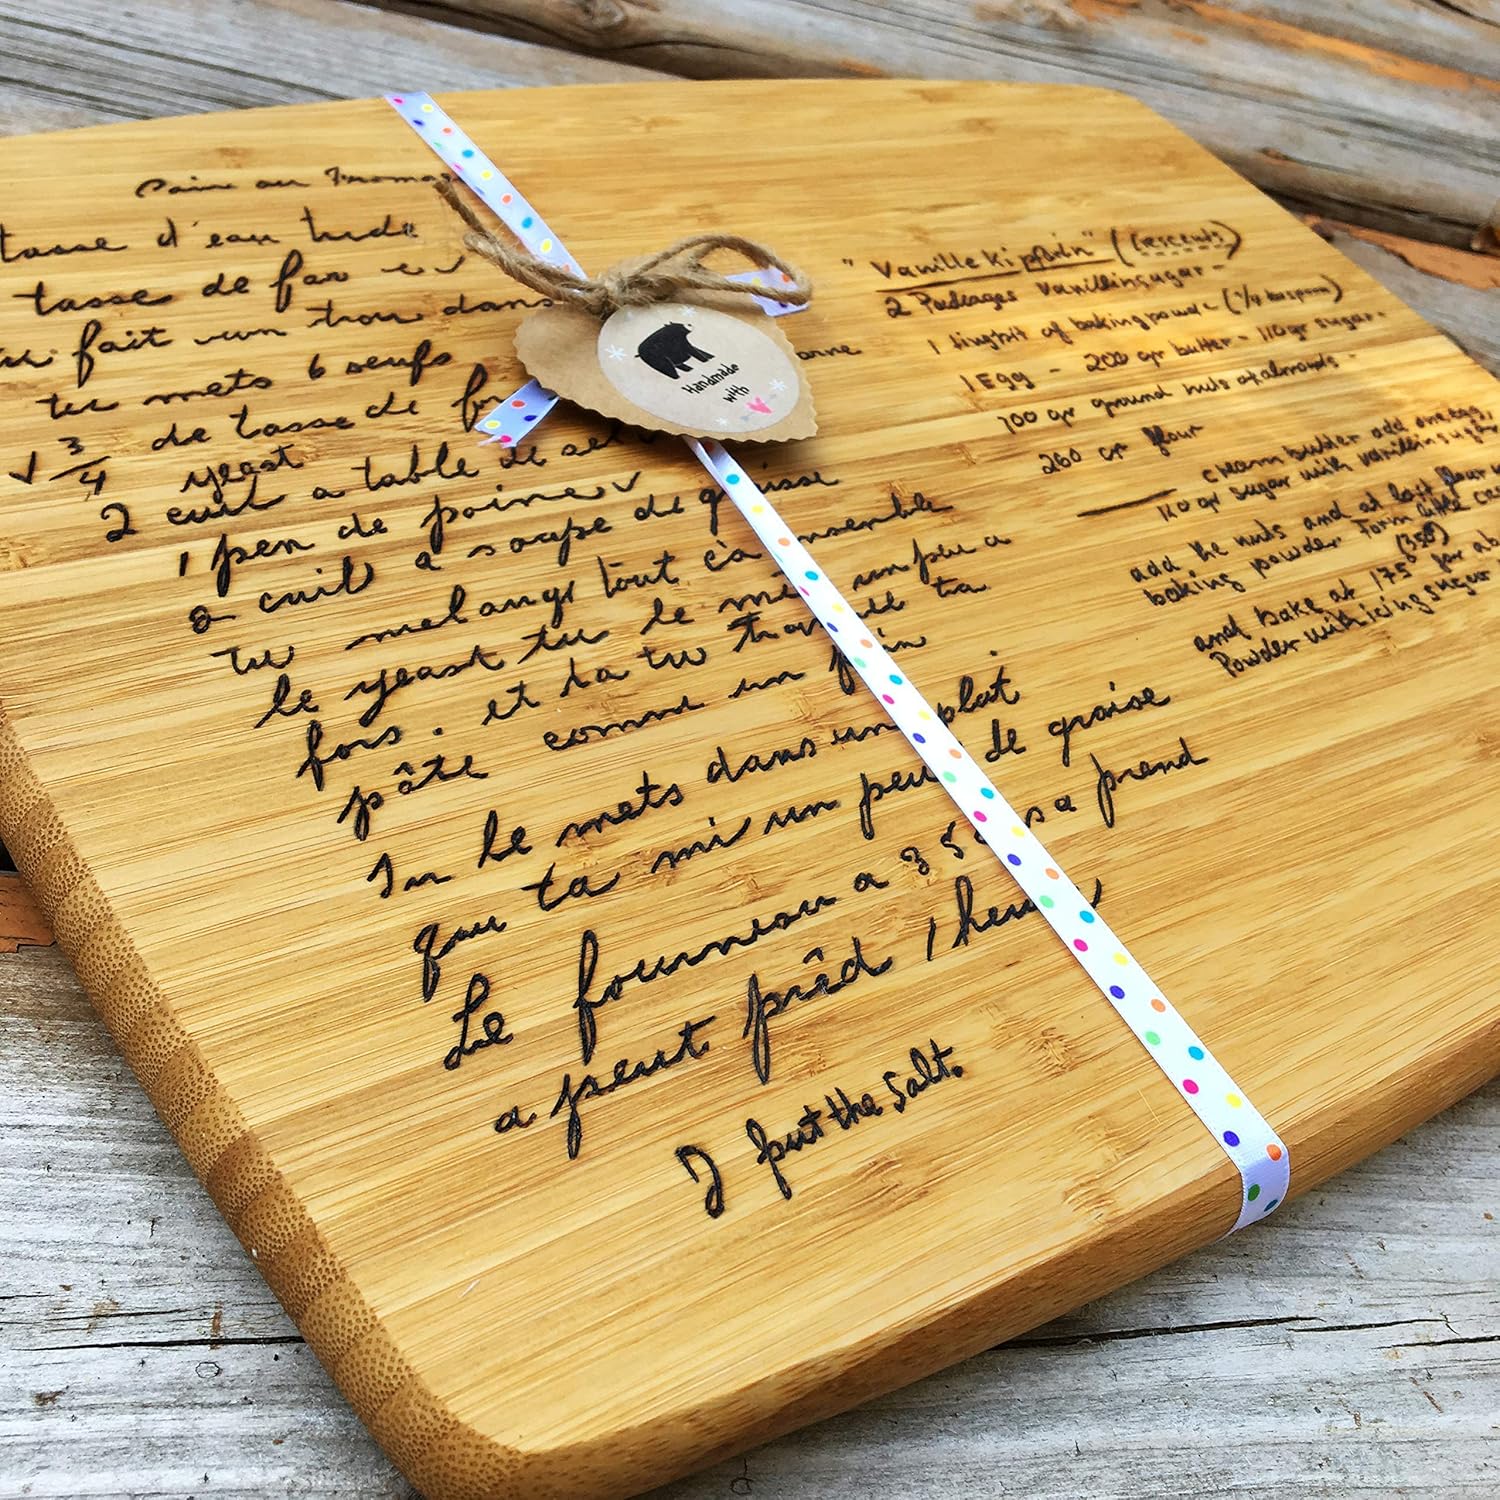 Pain au Fromage
tasse d'eau
tasse de
fait un trou dans
tu mets 6 oeufs
√ 3/4 de tasse de
yeast
2 cuil a table de
1 peu de
2 cuil a soupe de graisse
tu melange tout ca ensemble
le yeast tu le un peu a
fois. et la tu ta
pâte comme un
Tu le mets dans un plat
que ta mi un peu de graise
Le fourneau a 350 sa prend
a peut prêd 1 heure
I put the salt.
Handmade
with
"Vanillekipferln" (Crescents)
2 Packages vanillinsugar -
1 tingbit of baking powder (1/4 teaspoon)
1 Egg - 200 gr butter - 110 gr sugar.
100 gr ground nuts or almonds -
260 gr flour
cream butter add one egg,
110 gr sugar with vanillinsugar
add the nuts and at last flour
baking powder. Form little
and bake at 175° (350) for
Powder with icing sugar